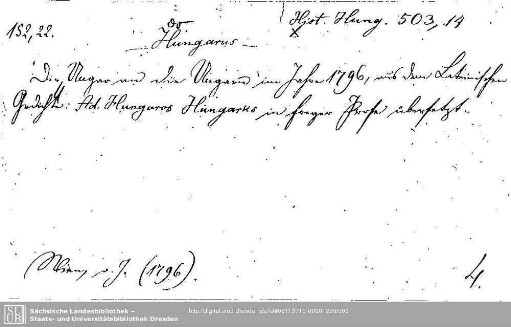 152, 22.
Hist. Hung. 503, 14
x
do
— Hungarus —
Die Ungar an die Ungarn im Jahre 1796, aus dem Lateinischen
Gedichte: Ad. Hungaros Hungarus in freyer Prosa übersetzt.
Wien, o. J. (1796).
4.
Sächsische Landesbibliothek –
Staats- und Universitätsbibliothek Dresden